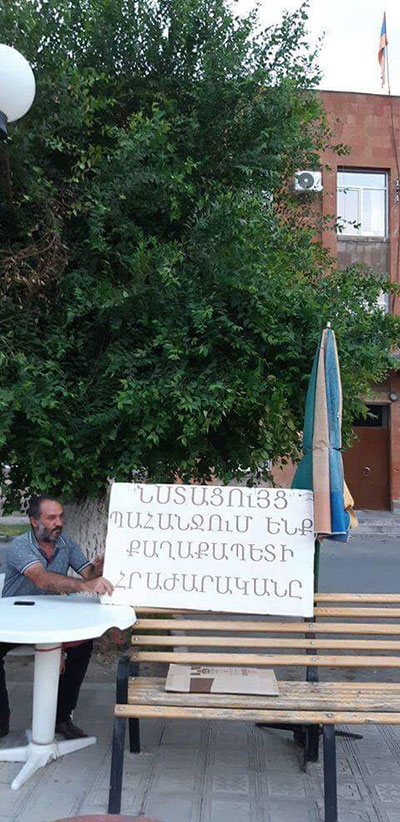 ՆՍՏԱՑՈւՅՑ
ՊԱՀԱՆՋՈՒՄ ԵՆՔ
ՔԱՂԱՔԱՊԵՏԻ
ՀՐԱԺԱՐԱԿԱՆԸ